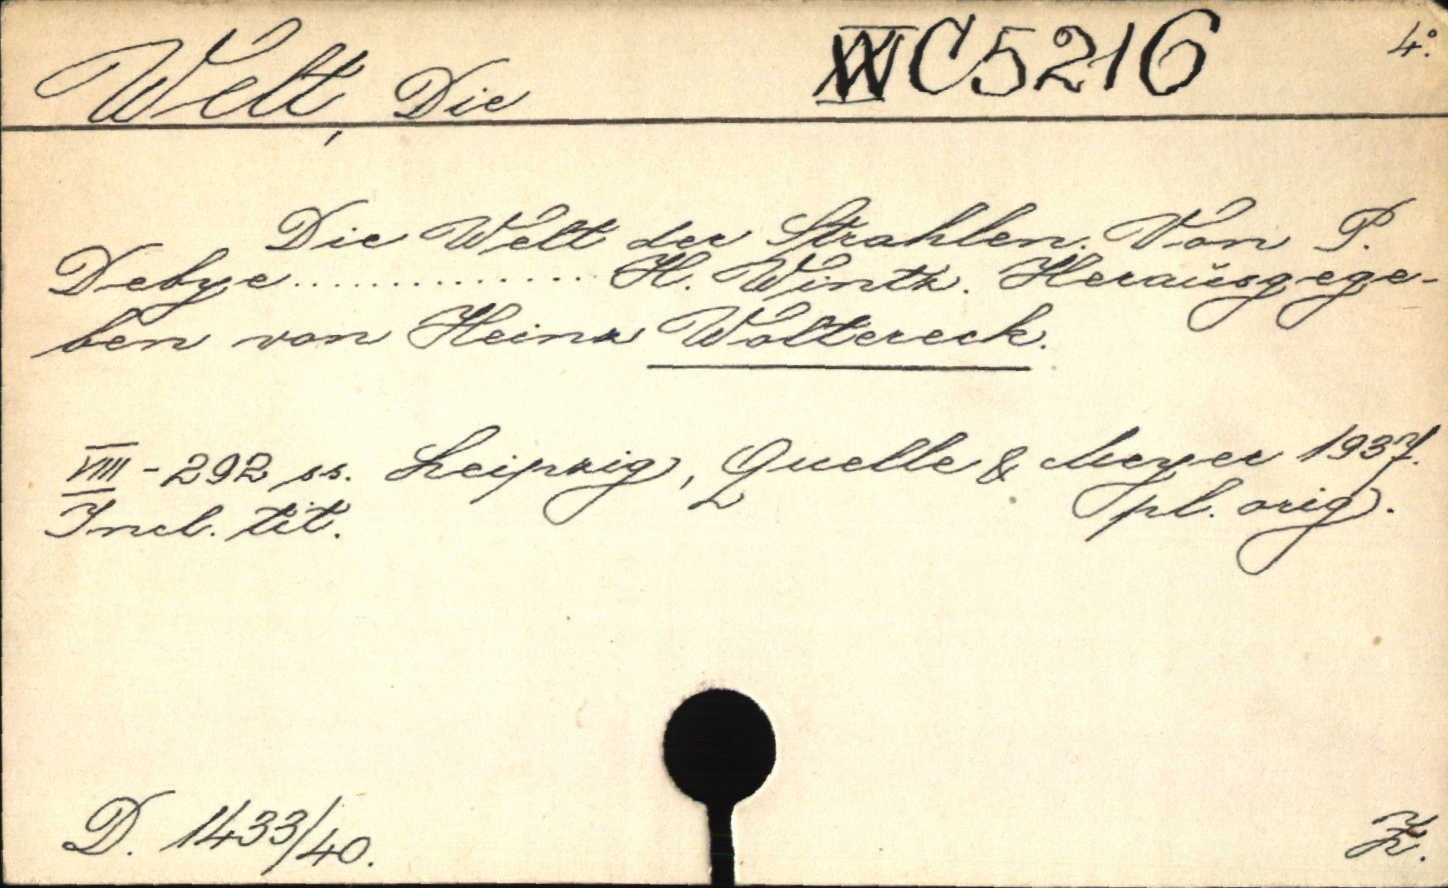 Welt, Die C5216 4°.
Die Welt der Strahlen. Von P.
Debye................ H. Wintz. Herausgege-
ben von Heinz Woltereck.
VIII - 292 ss. Leipzig, Quelle & Meyer 1937.
Incl. tit. pl. orig.
D. 1433/40.